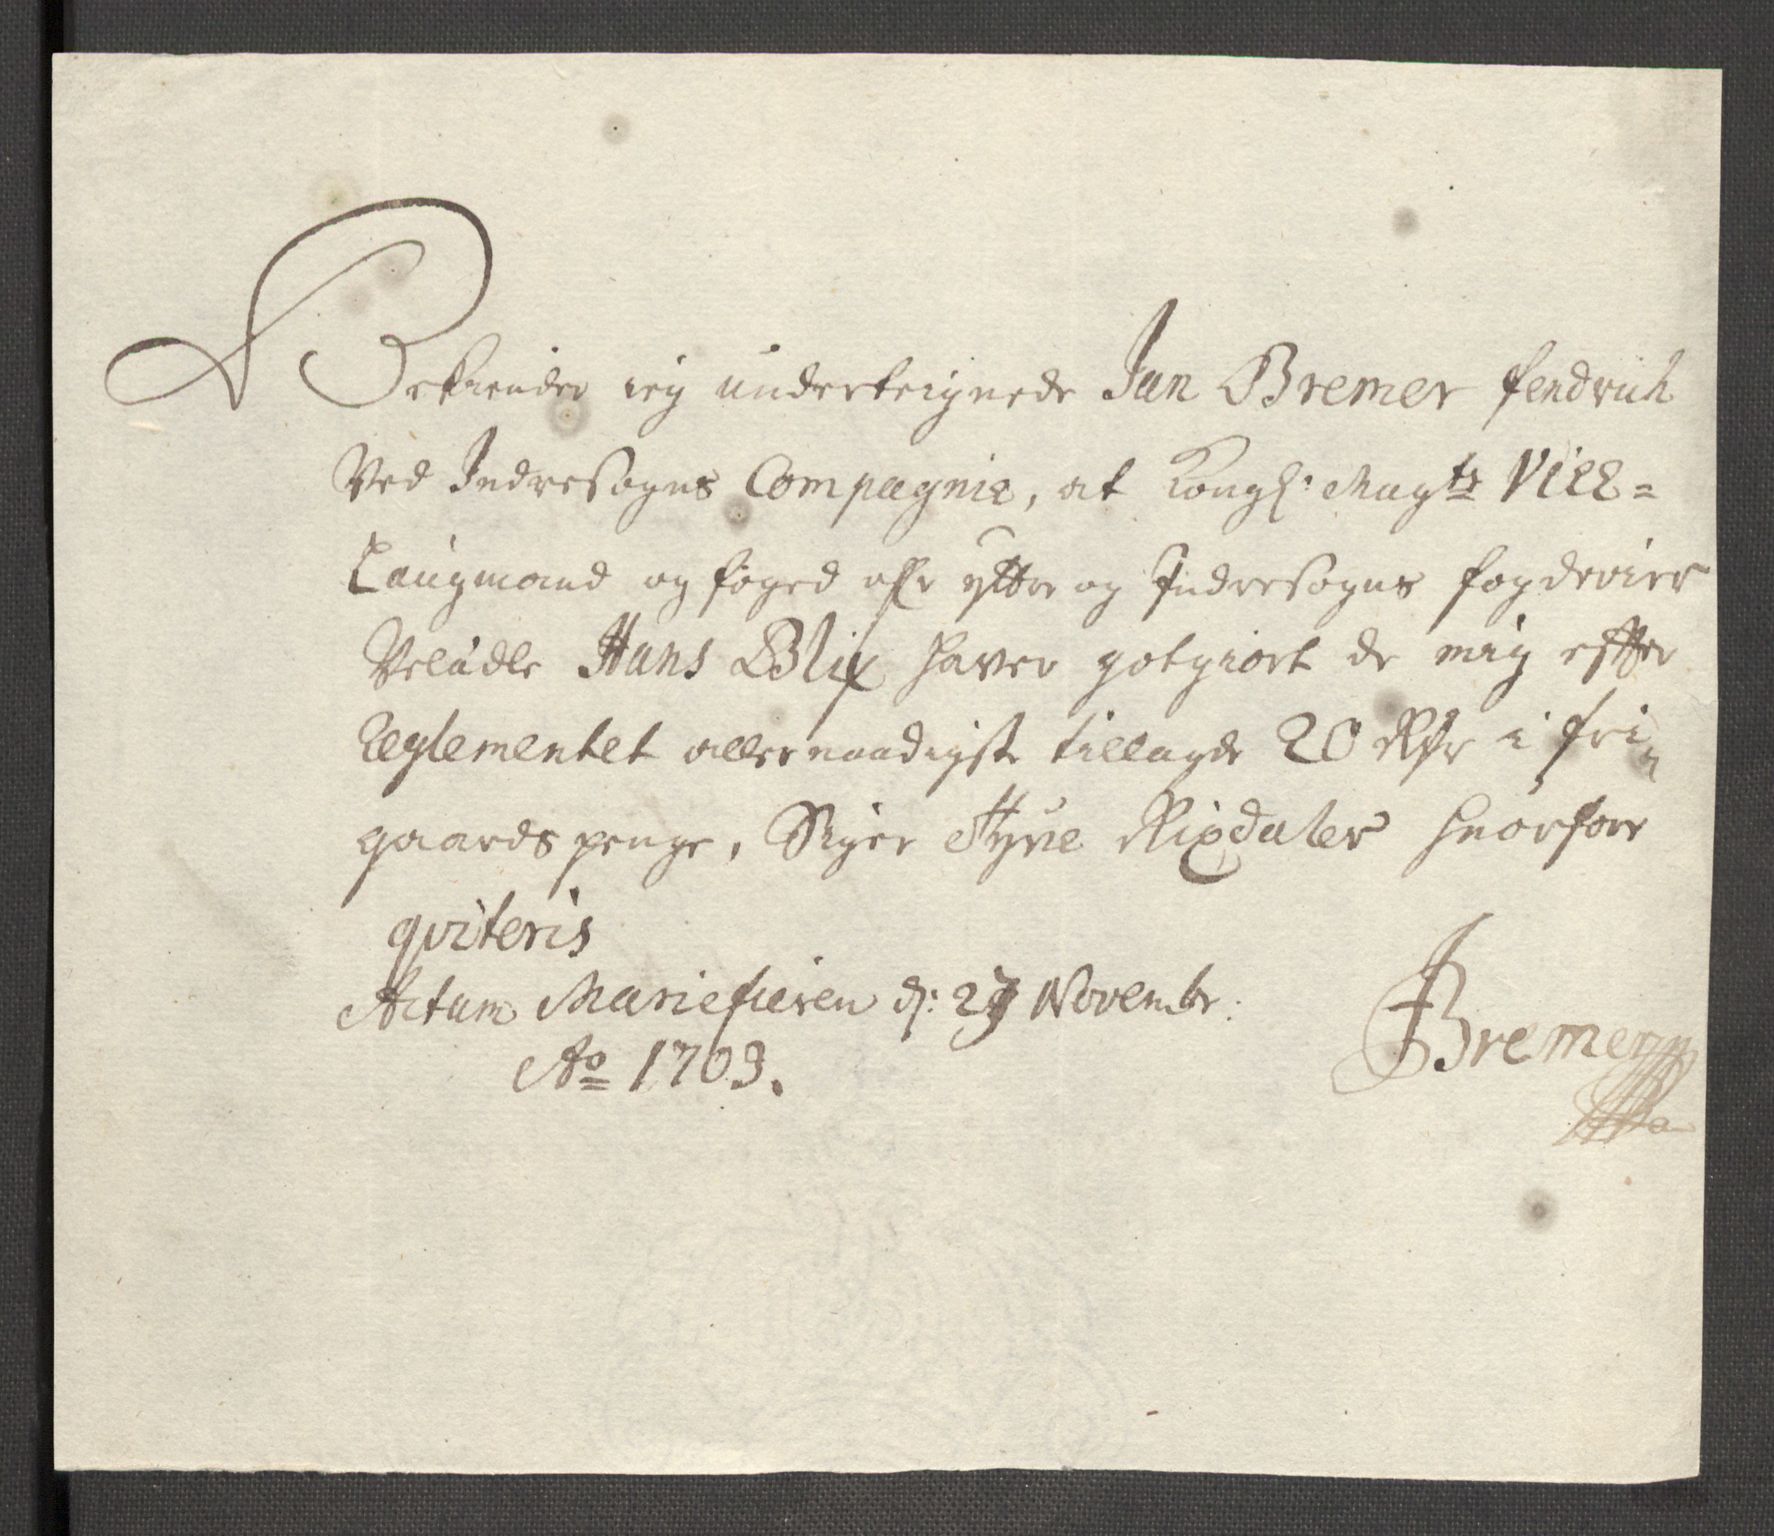 Bekiender ieg underteignede Jan Bremer fendrich
Ved Indresogns Compagnie, at Kongl: Mayts Vice=
Laugmand og foged ofr yttre og Indresogns fogderier
Velædle Hans Blix haver gotgiort de mig effter
Reglementet allernaadigste tillagde 20 Rdr i fri=
gaards penge, Siger Tyve Rixdaler huorfore
qviteris
Actum Mariefieren d: 27 Novembr:
Ao 1703.
JBremer